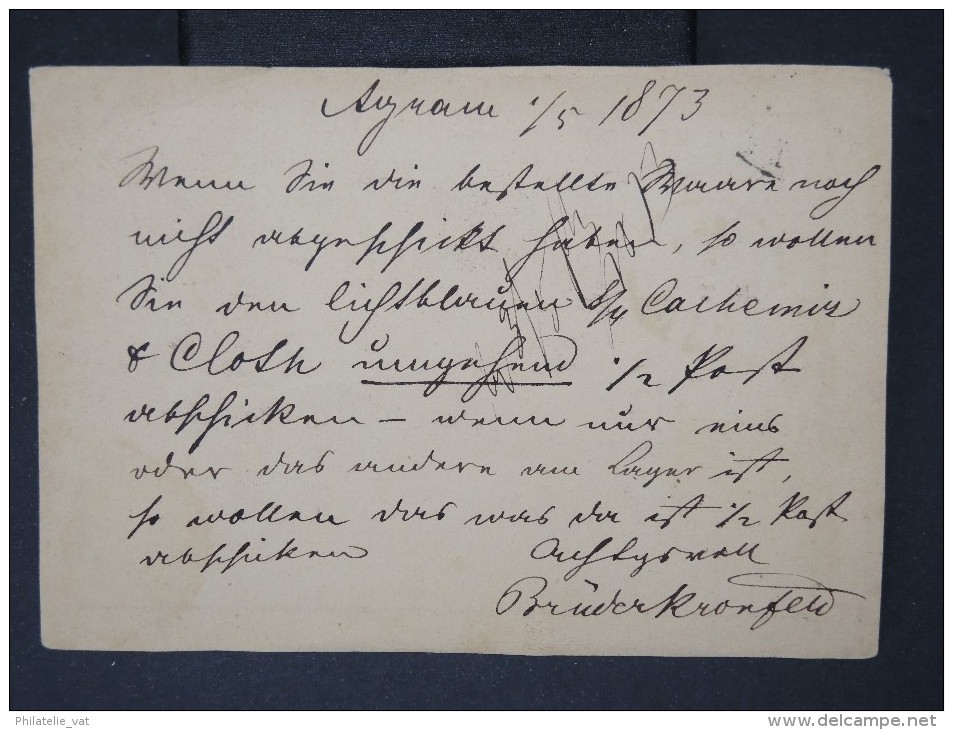 Agram 1/5 1873
Wenn Sie die bestellte Waare noch
nicht abgeschickt haben, so wollen
Sie den lichtblauen 6/4 Cachemir
& Cloth umgehend Post
abschicken – wenn nur eins
oder das andere am Lager ist,
so wollen das was da ist Post
abschicken Achtgsvoll
Brüder Kronfeld
Philatelie_vat
www.delcampe.net